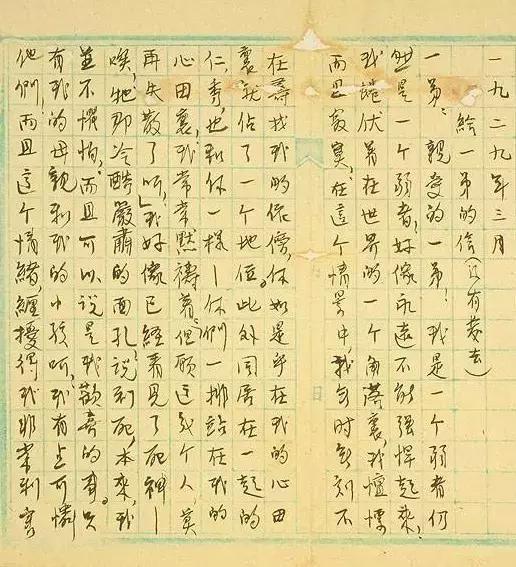 一九二九年三月
給一弟的信(只有葵去)
一弟:親愛的一弟!我是一個弱者何
然是一个弱者,好像永遠不能强悍起來,
我蜷伏著在世界的一个角落裏,我懼慄
而且寂寞,在這个情景中,我無时無刻不
在尋找我的信賴,你如是乎在我的心田
裏就佔了一个地位。此外同居在一起的
仁、秀,也和你一樣——你們一排站在我的
心田裏,我常常默禱着:但願這几个人,莫
再失散了呵,」我好像已經看見了死神——
唉,牠那冷酷嚴肅的面孔,說到死,本來,我
並不懼怕,而且可以說是我歡喜的事。只
有我的母親和我的小孩呵,我有点可憐
他們,而且這个情緒,纏擾得我非常利害,